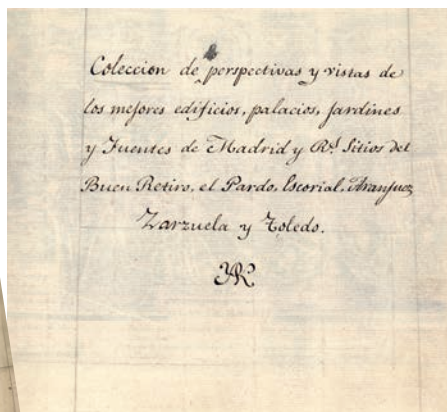 Coleccion de perspectivas y vistas de
los mejores edificios, palacios, jardines
y Fuentes de Madrid y Rs. Sitios del
Buen Retiro, el Pardo, Escorial, Aranjuez,
Zarzuela y Toledo.